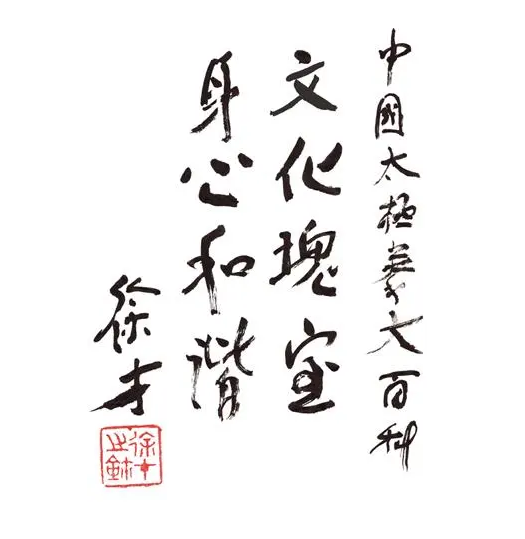 中國太極拳大百科
文化瑰宝
身心和谐
徐才
徐才
之鉥